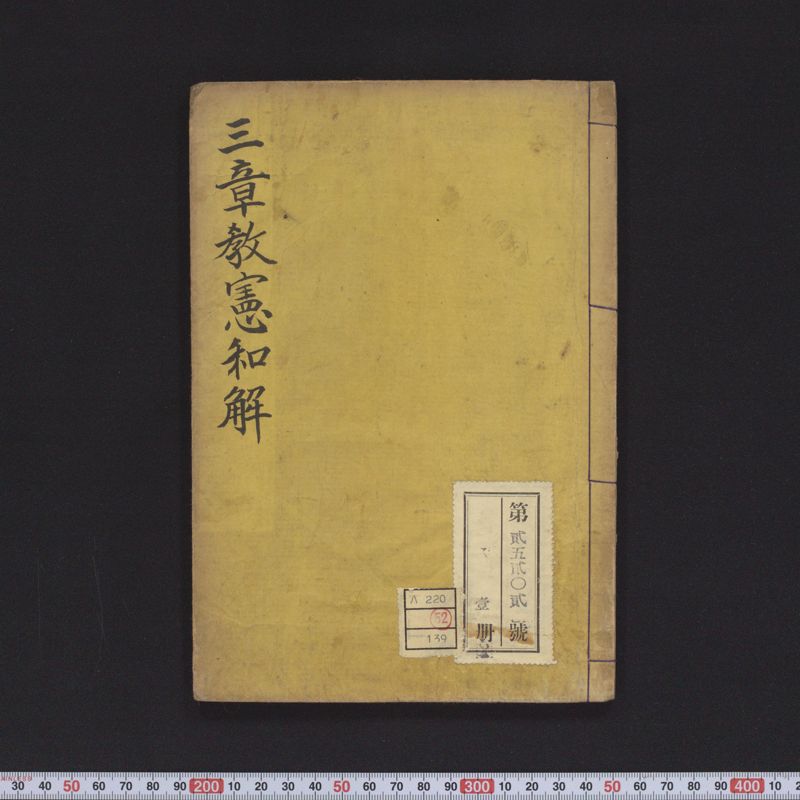 三章教憲和解
第貳五百〇貳號
壹册
八 220
52
139
30 40 50 60 70 80 90 200 10 20 30 40 50 60 70 80 90 300 10 20 30 40 50 60 70 80 90 400 10